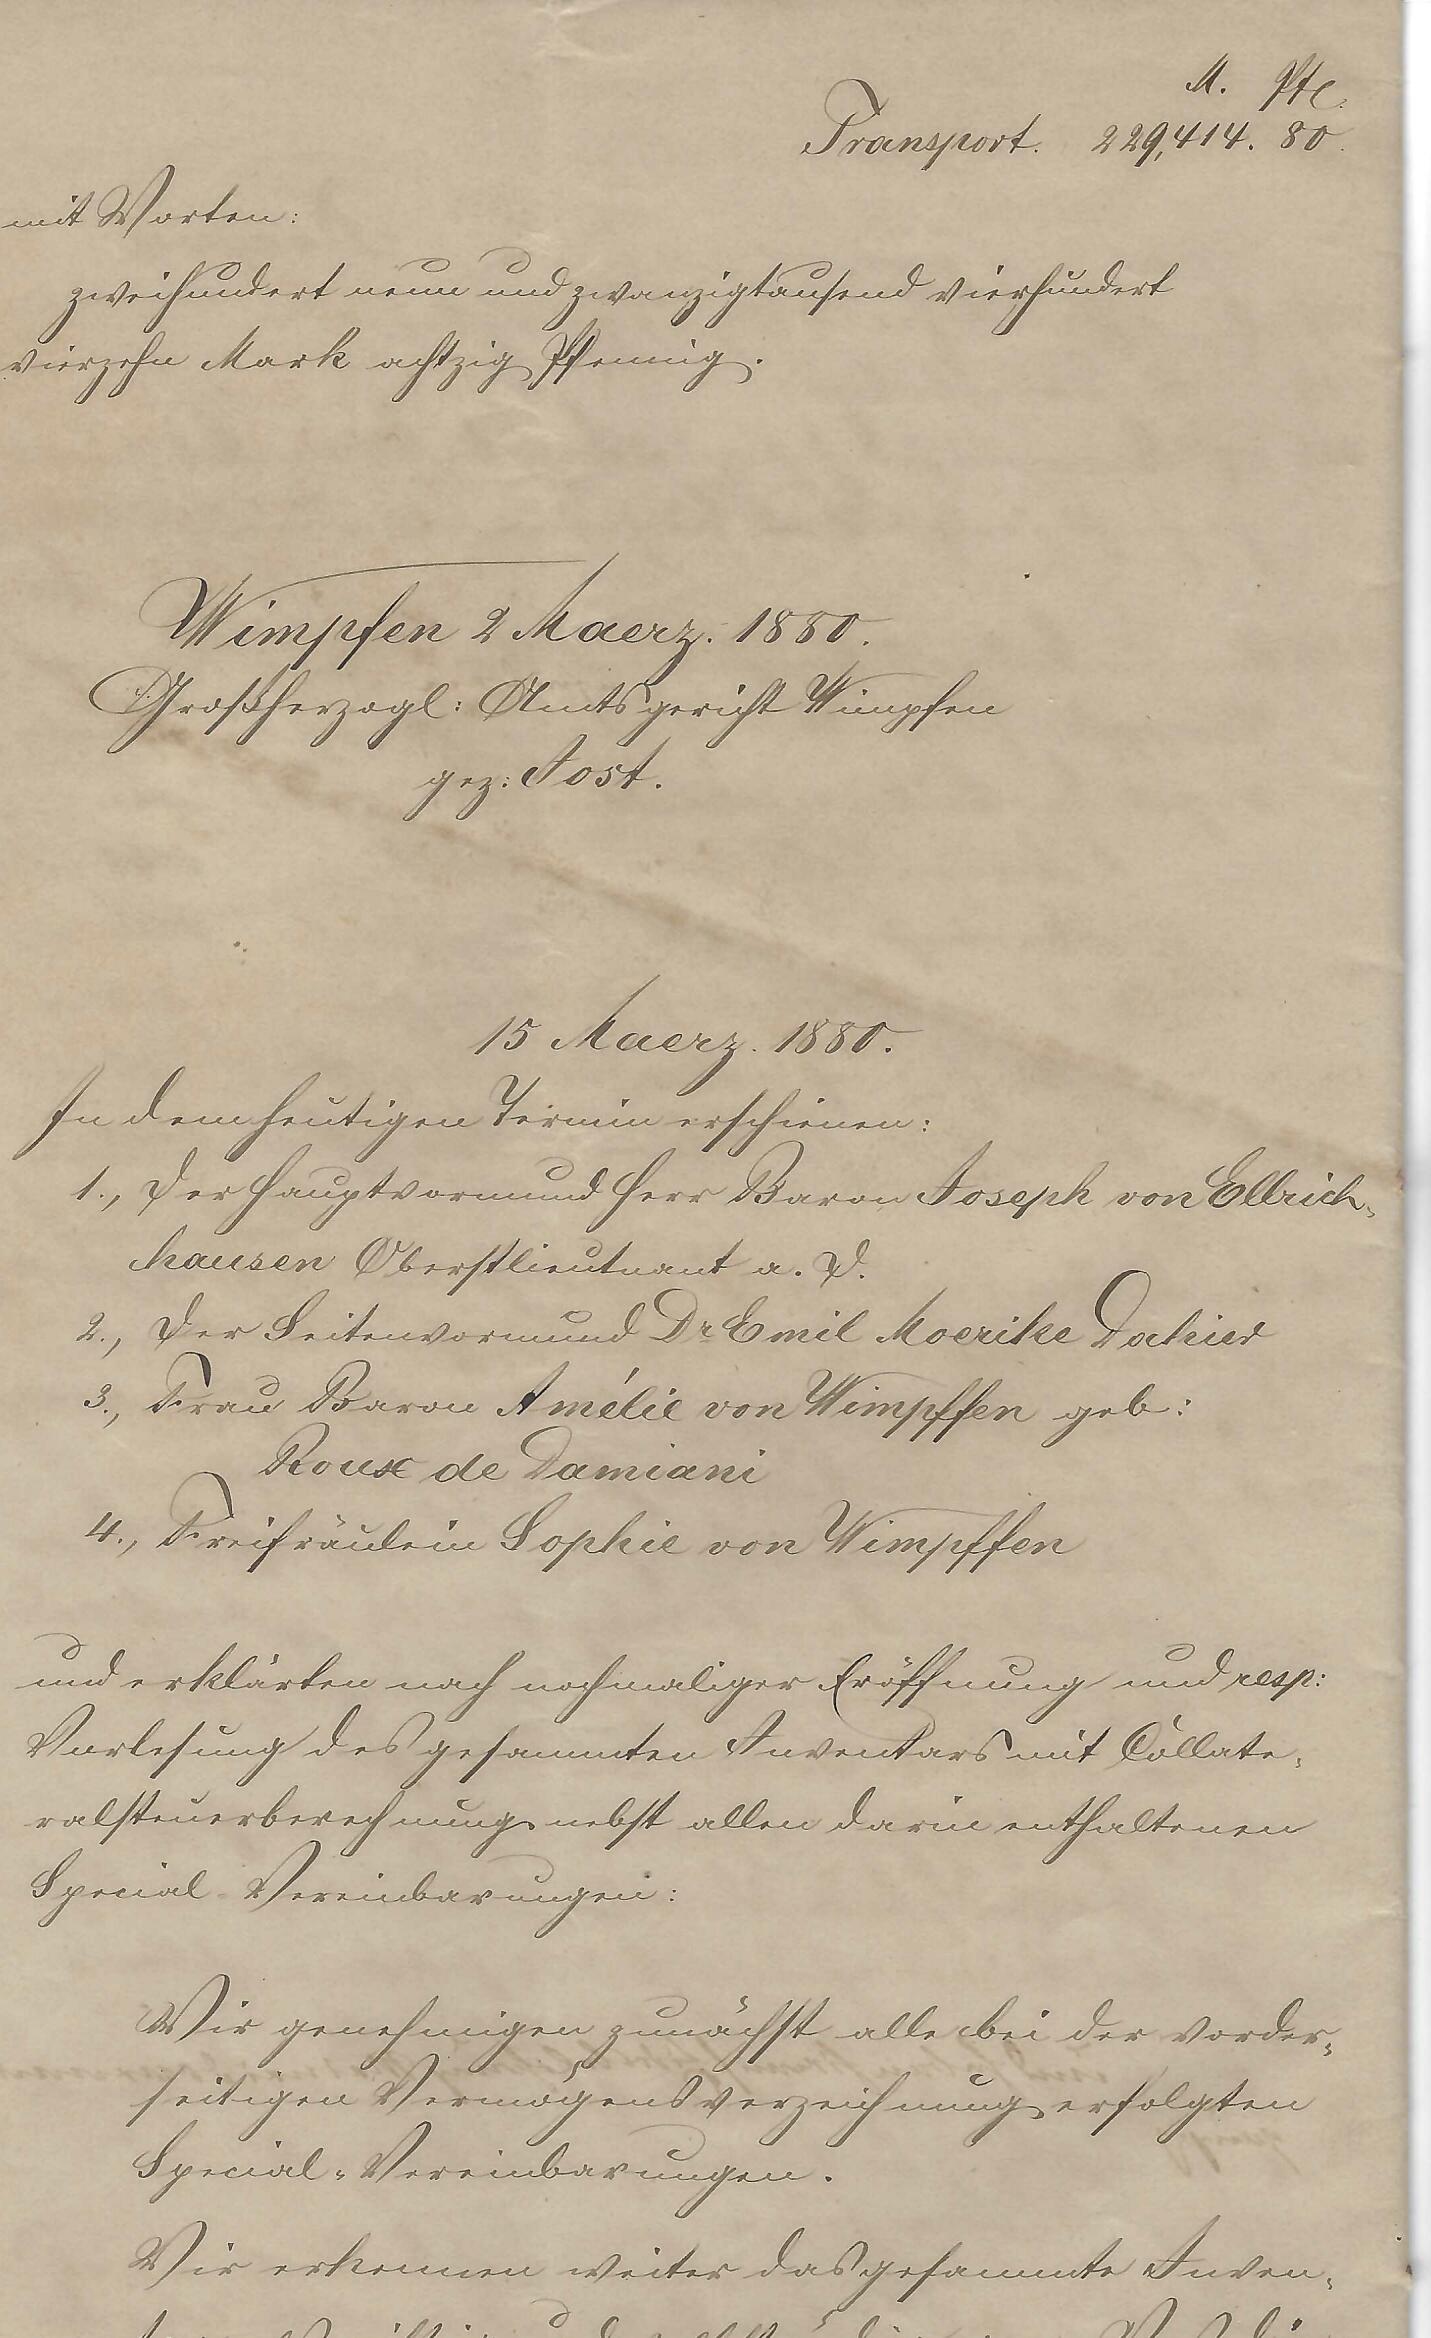 M. Pfg.
Transport. 229,414. 80.
mit Worten:
zweihundert neun und zwanzigtausend vierhundert
vierzehn Mark achtzig Pfennig.
Wimpfen 2 Maerz. 1880.
Großherzogl: Amtsgericht Wimpfen
gez: Jost.
15 Maerz. 1880.
In dem heutigen Termin erschienen:
1., Der Hauptvormund Herr Baron Joseph von Ellrich-
hausen Oberstlieutnant a. D.
2., Der Seitenvormund Dr Emil Moerike Dahier
3., Frau Baron Amélie von Wimpffen geb:
Roux de Damiani
4., Freifräulein Sophie von Wimpffen
und erklärten nach nochmaliger Eröffnung und resp:
Vorlesung des gesammten Inventars mit Collate-
ralsteuerberechnung nebst allen darin enthaltenen
Special-Vereinbarungen:
Wir genehmigen zunächst alle bei der vorder-
seitigen Vermögensverzeichnung erfolgten
Special-Vereinbarungen.
Wir erkennen weiter das gesammte Inven-